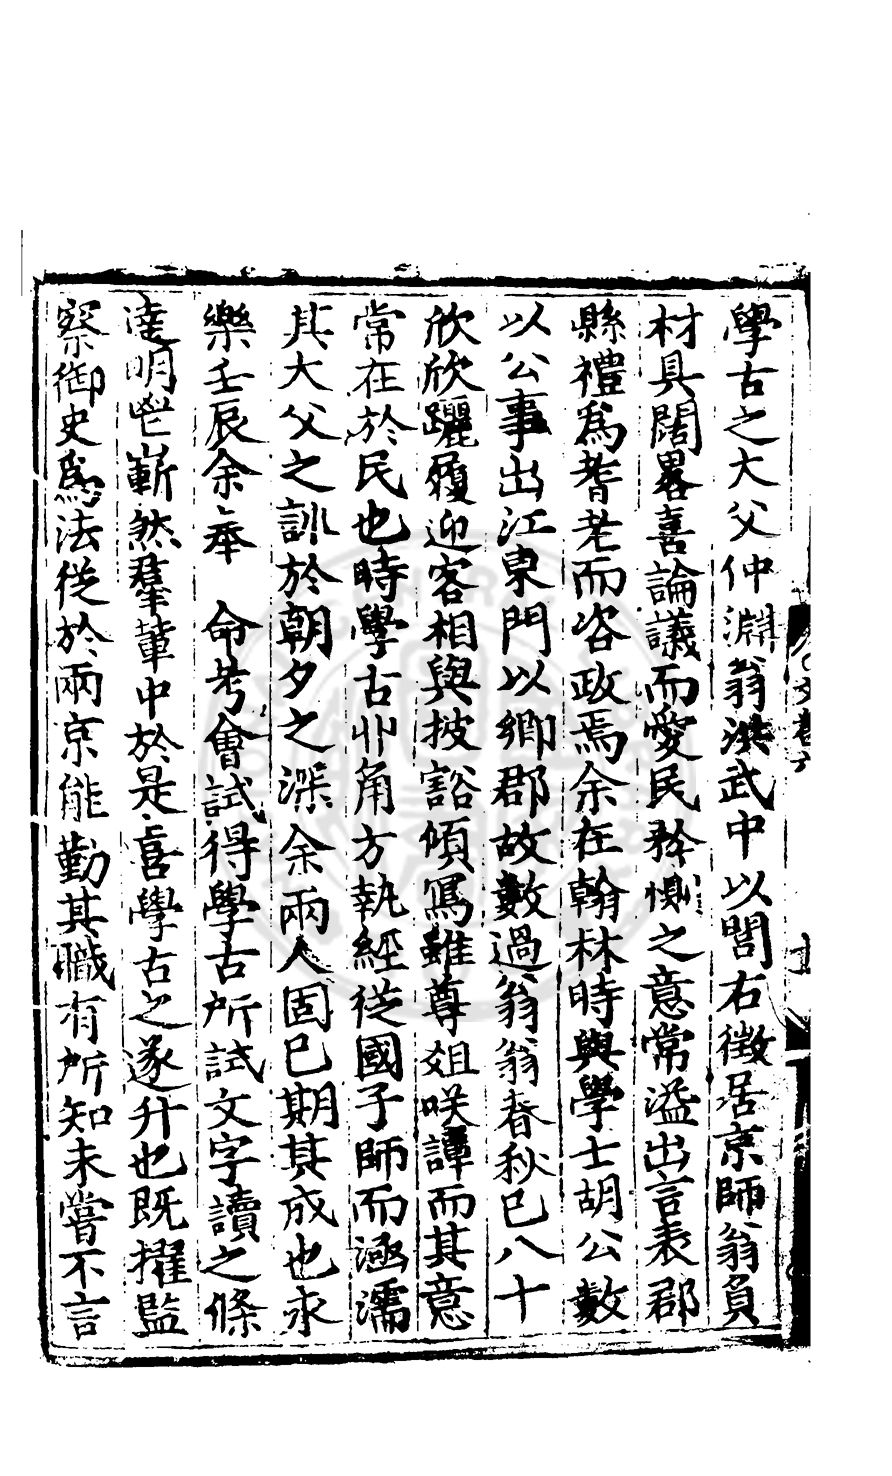 學古之大父仲淵翁洪武中以閭右徵居京師翁負
材具闊畧喜論議而愛民矜惻之意常溢出言表郡
縣禮爲耆老而咨政焉余在翰林時與學士胡公數
以公事出江東門以鄉郡故數過翁翁春秋已八十
欣欣躧履迎客相與披豁傾寫雖尊俎咲譚而其意
常在於民也時學古丱角方執經從國子師而涵濡
其大父之訓於朝夕之深余兩人固已期其成也永
樂壬辰余奉　命考會試得學古所試文字讀之條
達明鬯嶄然羣輩中於是喜學古之遂升也既擢監
察御史爲法從於兩京能勤其職有所知未嘗不言
文卷六